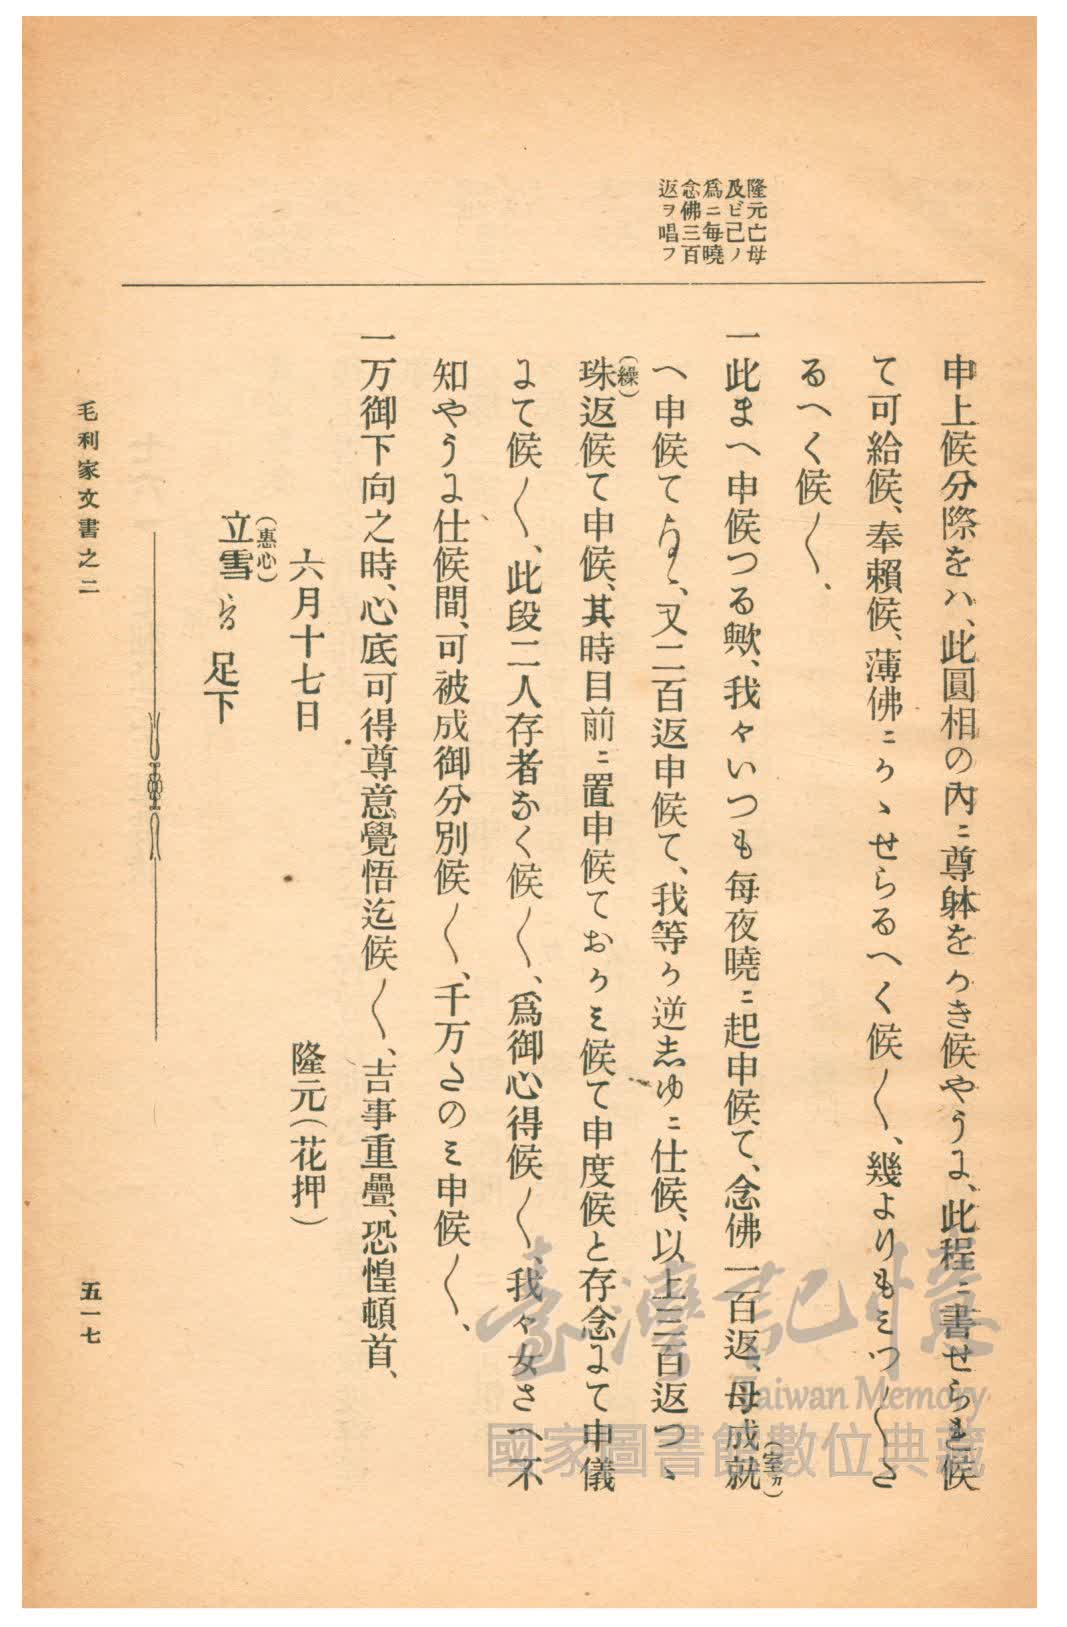 隆元亡母
及ビ己ノ
爲ニ毎曉
念佛三百
返ヲ唱フ
申上候分際をハ、此圓相の內ニ尊躰をかき候やうよ、此程ニ書せられ候
て可給候、奉賴候、薄佛ニかゝせらるへく候〱、幾よりもミつ〱さ
るへく候〱、
一此まへ申候つる歟、我々いつも毎夜曉ニ起申候て、念佛一百返、母成就
(室カ)
へ申候てする、又二百返申候て、我等か逆志ゆニ仕候、以上三百返つゝ
(繰)
珠返候て申候、其時目前ニ置申候ておかミ候て申度候と存念よて申儀
よて候〱、此段二人存者なく候〱、爲御心得候〱、我々女さへ不
知やうよ仕候間、可被成御分別候〱、千万たのミ申候〱、
一万御下向之時、心底可得尊意覺悟迄候〱、吉事重疊、恐惶頓首、
六月十七日 隆元(花押)
(惠心)
立雪 足下
毛利家文書之二
五一七
臺灣記憶
Taiwan Memory
國家圖書館數位典藏